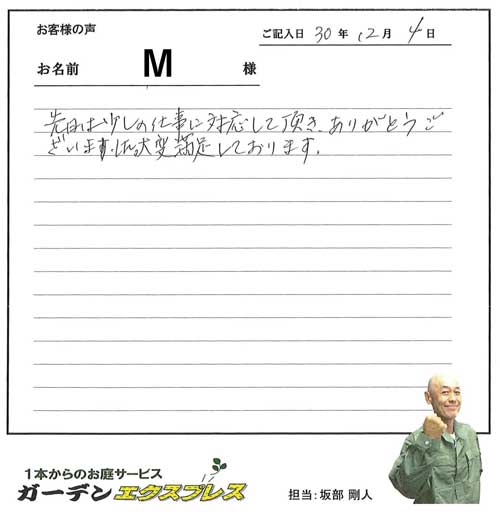 お客様の声
ご記入日 30年 12月 4日
お名前 M 様
先日は少しの仕事に対応して頂き、ありがとうご
ざいました。大変満足しております。
1本からのお庭サービス
ガーデンエクスプレス
担当:坂部 剛人